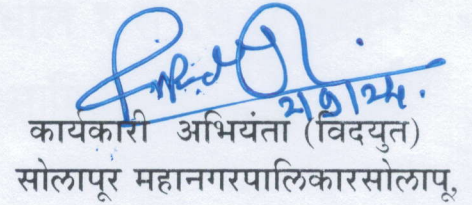 2/9/24.
कार्यकारी अभियंता (विदयुत)
सोलापूर महानगरपालिकारसोलापू,